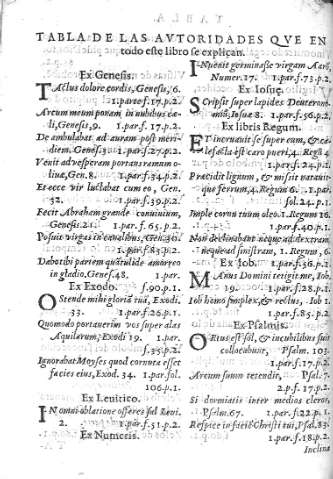 TABLA
TABLA DE LAS AVTORIDADES QVE EN
todo este libro se explican.
Ex Genesis.
TActus dolore cordis, Genesis, 6.
1.par.f.17.p.2.
Arcum meum ponam in nubibus cæ-
li, Genesis, 9. 1.par.f.17.p.2.
De ambulabat ad auram post meri-
diem. Genes.3. 1.par.f.27.p.2.
Venit ad vesperam portans ramum o-
liuæ, Gen. 8. 1.par.f.34.p.2.
Et ecce vir luctabat cum eo, Gen.
32. 1.par.f.39.p.2.
Fecit Abraham grande conuiuium,
Genesis.21. 1.par.f.65.p.2.
Posuit virgas in canalibus, Gen.30.
1.par.f.83.p.2.
Dabo tibi partem quã tuli de amorreo
in gladio, Genes.48. 1.par.
Ex Exodo. f.90.p.1.
OStende mihi gloriã tuã, Exodi.
33. 1.par.f.26.p.1.
Quomodo portauerim vos super alas
Aquilarum, Exodi 19. 1.par.
f.35.p.2.
Ignorabat Moyses quod cornuta esset
facies eius, Exod. 34. 1.par.fol.
106.p.1.
Ex Leuitico.
IN omni oblatione offeres sal Leui.
2. 1.par.f.51.p.2.
Ex Numeris.
INuenit germinasse virgam Aarõ,
Numer.17. 1.par.f.73.p.2.
Ex Iosue.
SCripsit super lapides Deuteron.
Iosue 8. 1.par.f.56.p.2.
Ex libris Regum.
ET incuruauit se super eum, & ca-
lefacta est caro pueri, 4. Reg.4
1.par.f.24.p.2.
Præcidit lignum, & misit natauit-
que ferrum, 4. Regum 6. 1.par.
fol.24.p.1.
Imple cornu tuum oleo. 1.Regum 16.
1.par.f.40.p.1.
Non declinabant neque ad dextram
neque ad sinistram, 1. Regum, 6.
Ex Iob. 1.par.f.36.p.1.
MAnus Domini tetigit me, Iob
19. 1.par.f.28.p.1.
Iob homo simplex, & rectus, Iob 1.
1.par.f.85.p.2.
Ex Psalmis.
ORtus est sol, & in cubilibus suis
collocabuntur, Psalm. 103.
1.par.f.17.p.2.
Arcum suum tetendit, Psal. 7.
2.p.f.17.p.2.
Si dormiatis inter medios cleros,
Psalm.67. 1.par.f.22.p.1.
Respice in faciẽ Christi tui, Psal.83.
1.par.f.18.p.2.
Inclina